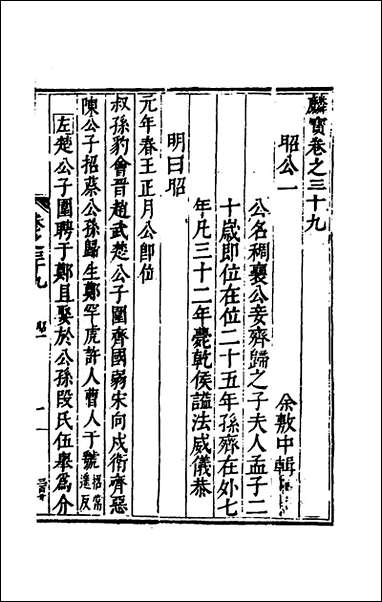 麟寶卷之三十九
余敷中輯
昭公一
公名稠襄公妾齊歸之子夫人孟子二
十歲即位在位二十五年孫齊在外七
年凡三十二年薨乾侯謚法威儀恭
明曰昭
元年春王正月公即位
叔孫豹會晉趙武楚公子圍齊國弱宋向戌衛齊惡
陳公子招蔡公孫歸生鄭罕虎許人曹人于虢招常遙反
左楚公子圍聘于鄭且娶於公孫段氏伍舉爲介
卷之三十九 昭一